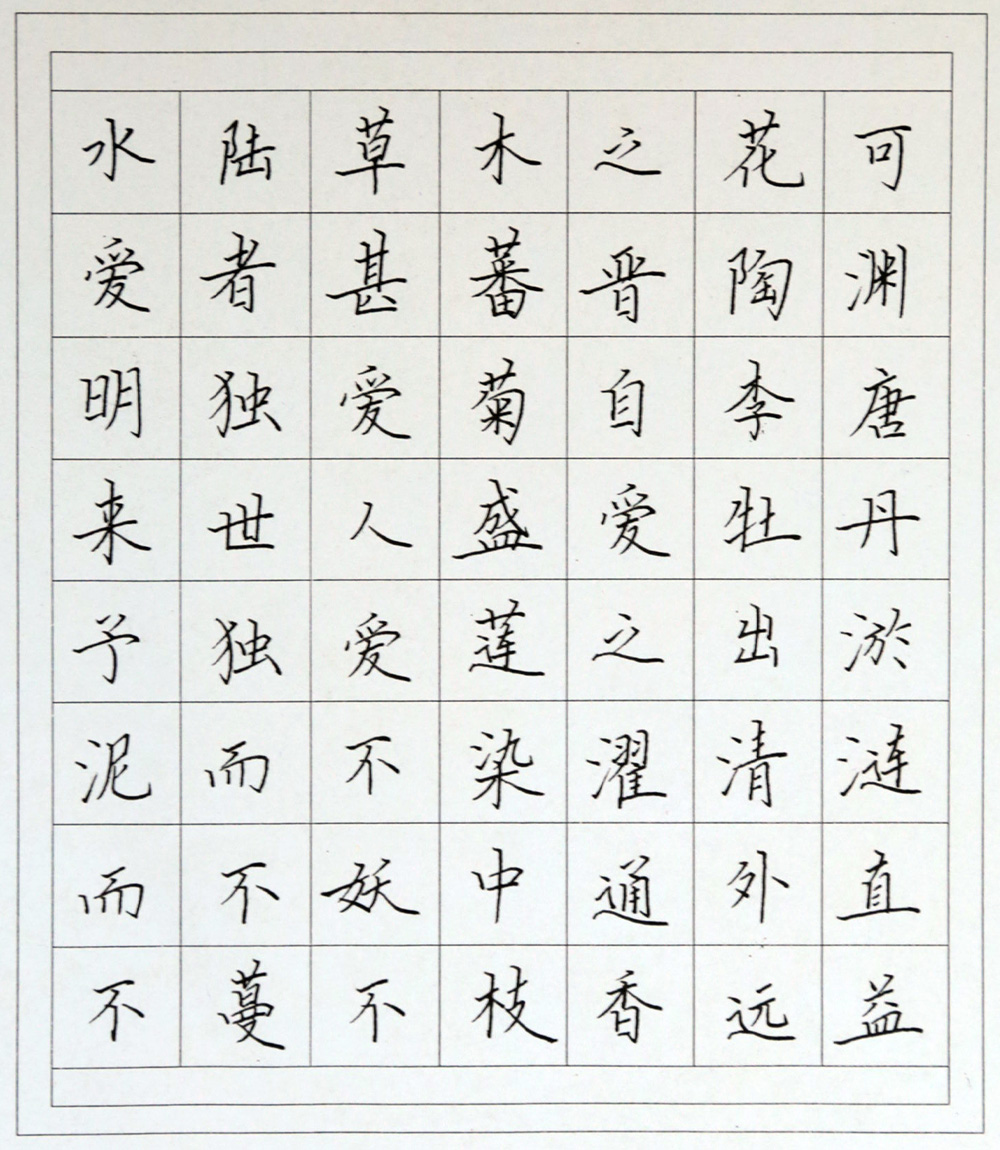 水陆草木之花可
爱者甚蕃晋陶渊
明独爱菊自李唐
来世人盛爱牡丹
予独爱莲之出淤
泥而不染濯清涟
而不妖中通外直
不蔓不枝香远益